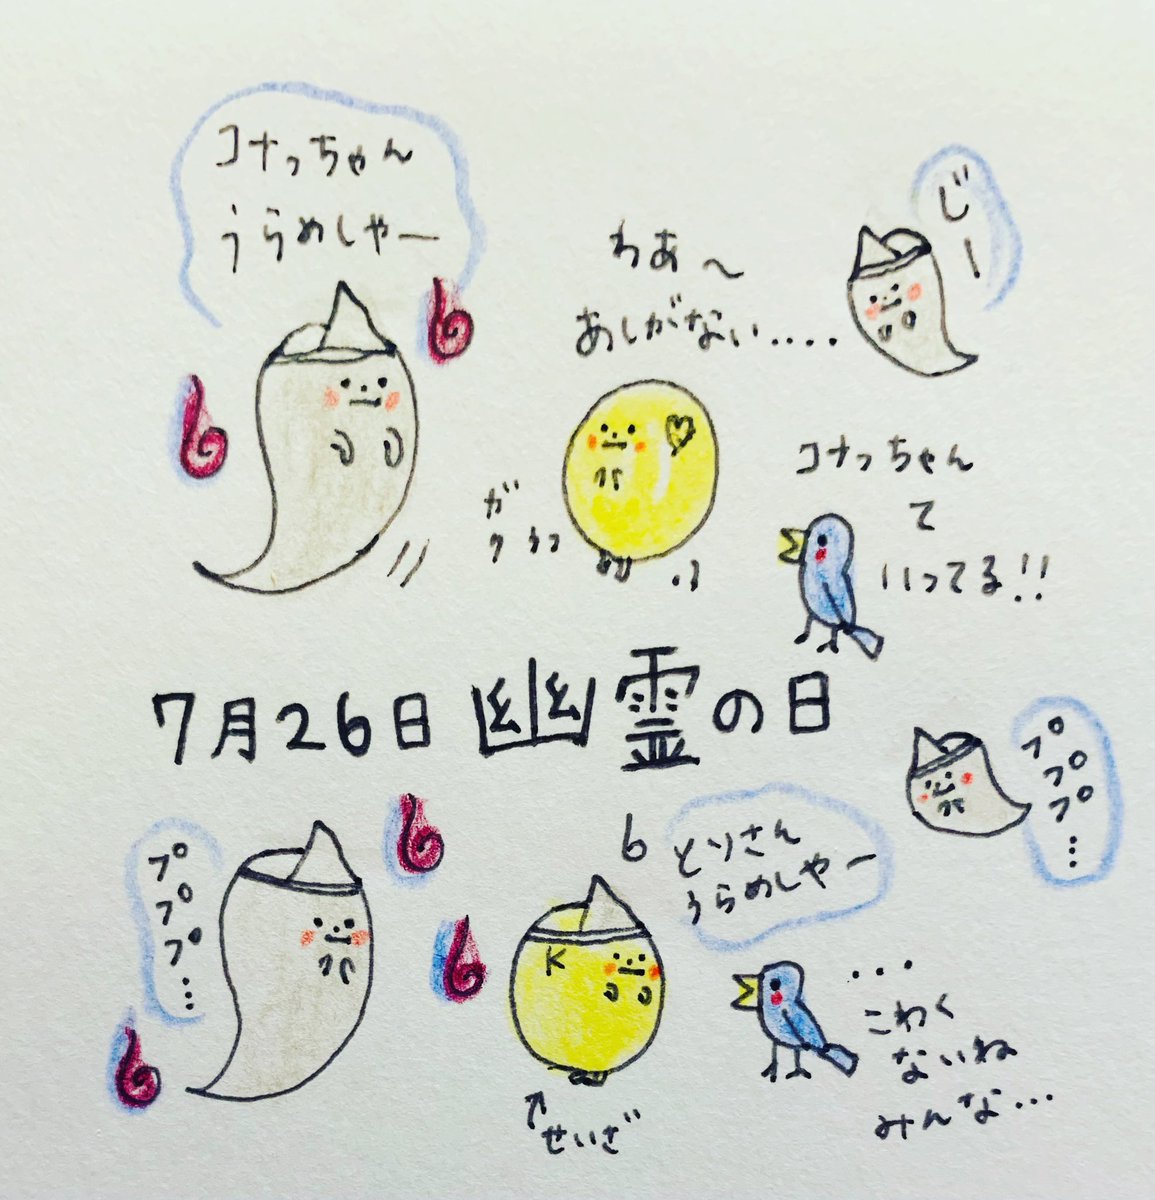 コナっちゃん
うらめしやー
じー
わあ～
あしがない‥‥
ガ
クッ
コナっちゃん
て
いってる!!
7月26日 幽霊の日
ププププ…
プププ…
とりさん
うらめしやー
K
…
こわく
ないね
みんな…
↑
せいざ